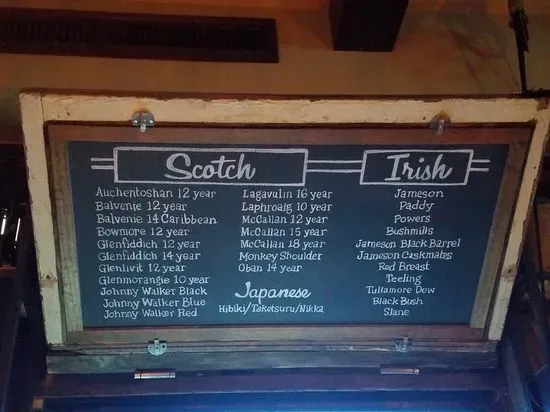 Scotch
Auchentoshan 12 year
Balvenie 12 year
Balvenie 14 Caribbean
Bowmore 12 year
Glenfiddich 12 year
Glenfiddich 14 year
Glenlivit 12 year
Glenmorangie 10 year
Johnny Walker Black
Johnny Walker Blue
Johnny Walker Red
Lagavulin 16 year
Laphroaig 10 year
McCallan 12 year
McCallan 15 year
McCallan 18 year
Monkey Shoulder
Oban 14 year
Japanese
Hibiki/Taketsuru/Nikka
Irish
Jameson
Paddy
Powers
Bushmills
Jameson Black Barrel
Jameson Caskmates
Red Breast
Teeling
Tullamore Dew
Black Bush
Slane